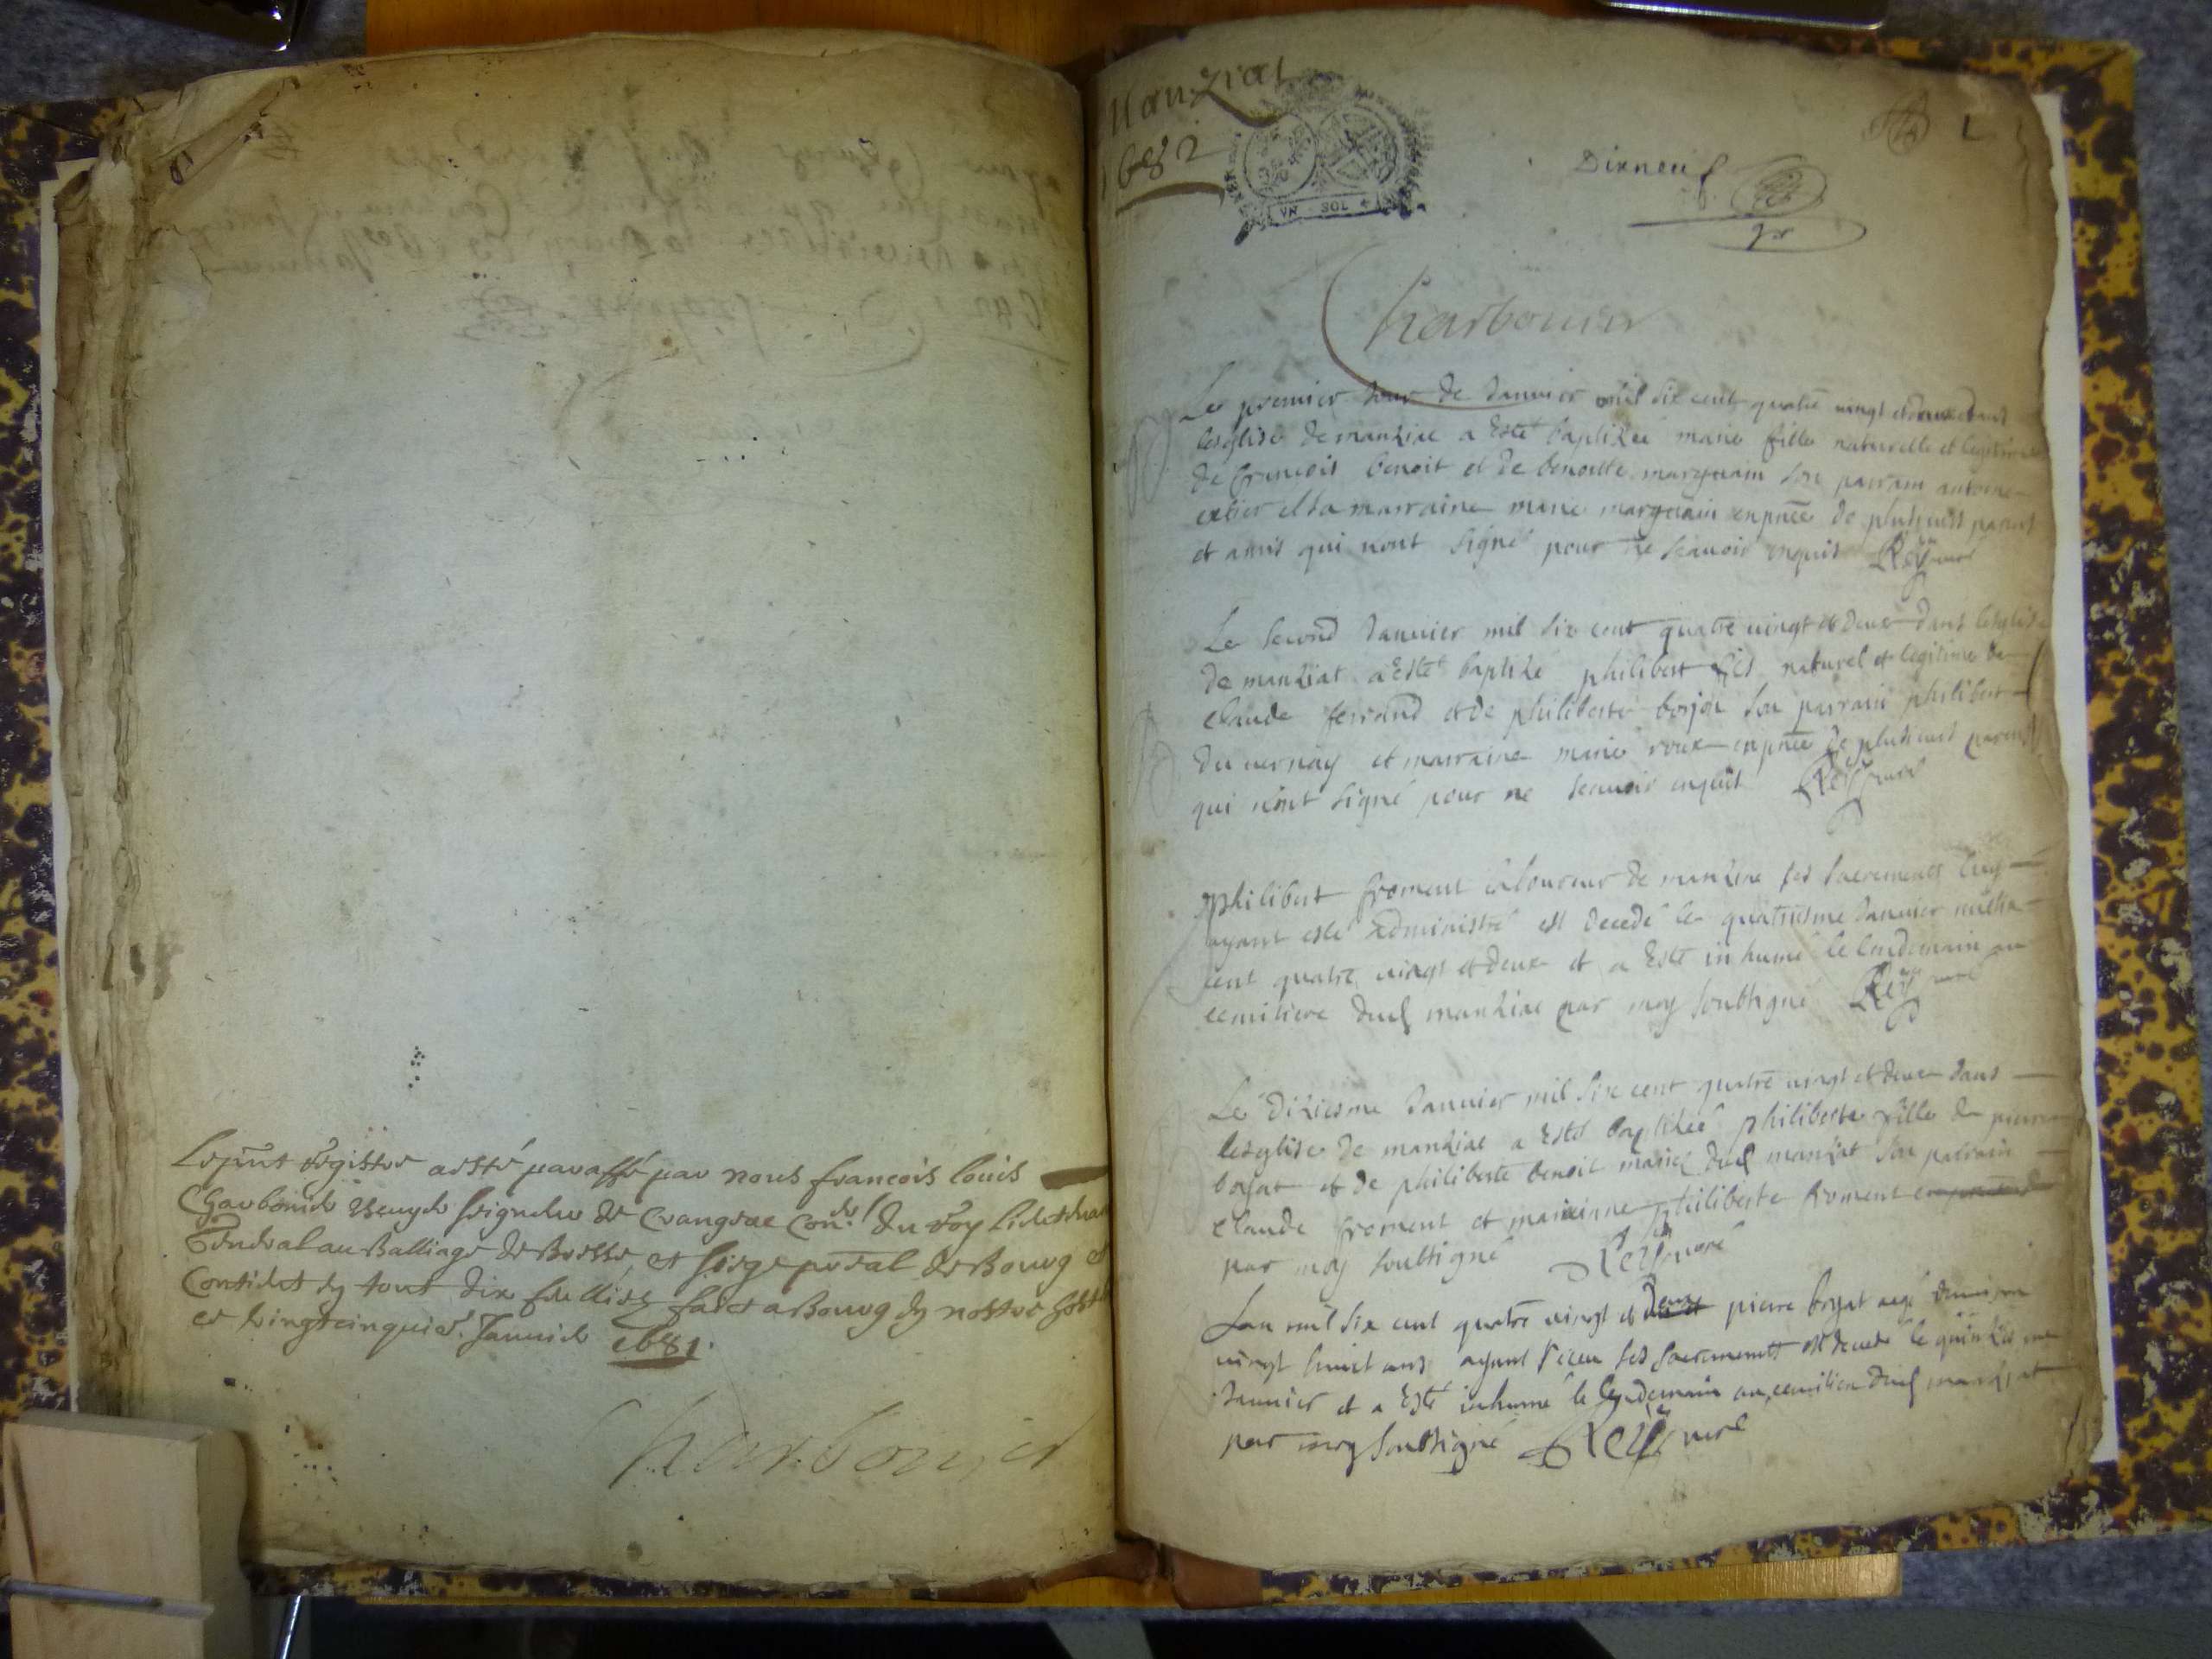 Le pnt registre a esté paraffé par nous francois louis
Charbonier escuyer seigneur de Crangeac Conr. du Roy lieutenant
General au Balliage de Bresse et siege pndal de Bourg et
Contient en tout dix feullietz faict a Bourg en nostre hostel
ce vingtcinquie. Januier 1681.
Charbonier
Manziat
1682
VN SOL
Dixneuf
1
Charbonier
Le premier Jour de Januier mil six cent quatre vingt et deux dans
lesglise de manziac a Esté baptizée marie fille naturelle et legitime
de francois benoit et de benoitte marguain son parrain antoine
et sa marraine marie marguain en pnce de plusieurs parents
et amis qui nont signé pour ne scauoir enquis
Le second Januier mil six cent quatre vingt et deux dans lesglise
de manziat a Esté baptizé philibert fils naturel et legitime de
claude ferrand et de philiberte borjon son parrain philibert
du uernay et marraine marie roux en pnce de plusieurs parents
qui nont signé pour ne scauoir enquis
philibert froment laboureur de manziac ses sacrements luy
ayant esté administré est decedé le quatriesme Januier mil six
cent quatre vingt et deux et a Esté inhumé le lendemain au
cemitiere dud manziac par moy soubsigné
Le diziesme Januier mil six cent quatre vingt et deux dans
lesglise de manziac a esté baptizée philiberte fille de pierre
boyat et de philiberte benoit mariez dud manziat son parrain
claude froment et marainne philiberte froment
par moy soubsigné
Lan mil six cent quatre vingt et deux pierre boyat agé denuiron
vingt huict ans ayant receu ses sacrements est decedé le quinziesme
Januier et a Esté inhumé le lendemain au cemitiere dud manziat
par moy soubsigné